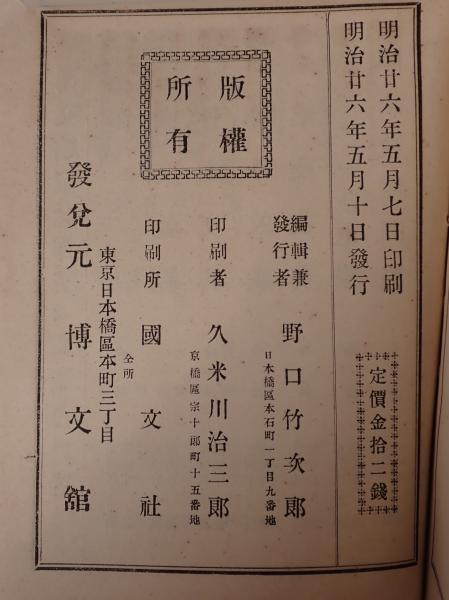 明治廿六年五月七日印刷
明治廿六年五月十日發行
定價金拾二錢
版權
所有
編輯兼
發行者
野口竹次郎
日本橋區本石町一丁目九番地
印刷者
久米川治三郎
京橋區宗十郎町十五番地
印刷所
國文社
仝所
東京日本橋區本町三丁目
發兌元
博文舘